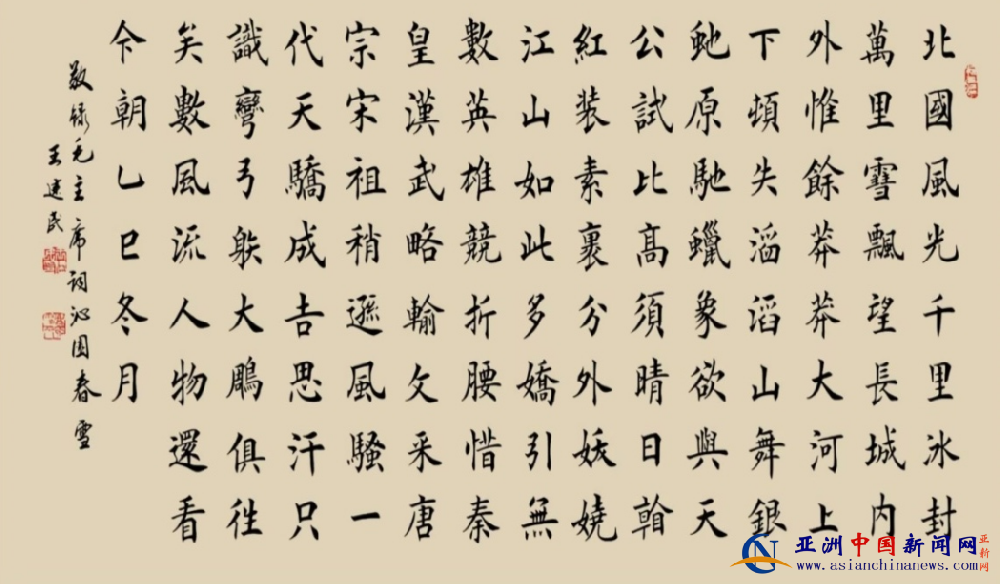 北國風光千里冰封
萬里雪飄望長城内
外惟餘莽莽大河上
下頓失滔滔山舞銀
虵原馳蠟象欲與天
公試比高須晴日
紅装素裹分外妖嬈
江山如此多嬌引無
數英雄競折腰惜秦
皇漢武略輸文采唐
宗宋祖稍遜風騷一
代天驕成吉思汗只
識彎弓䠶大鵰俱往
矣數風流人物還看
今朝乙巳冬月
敬録毛主席詞沁園春雪
王建民
亚洲中国新闻网
亚新网
www.asianchinanews.com